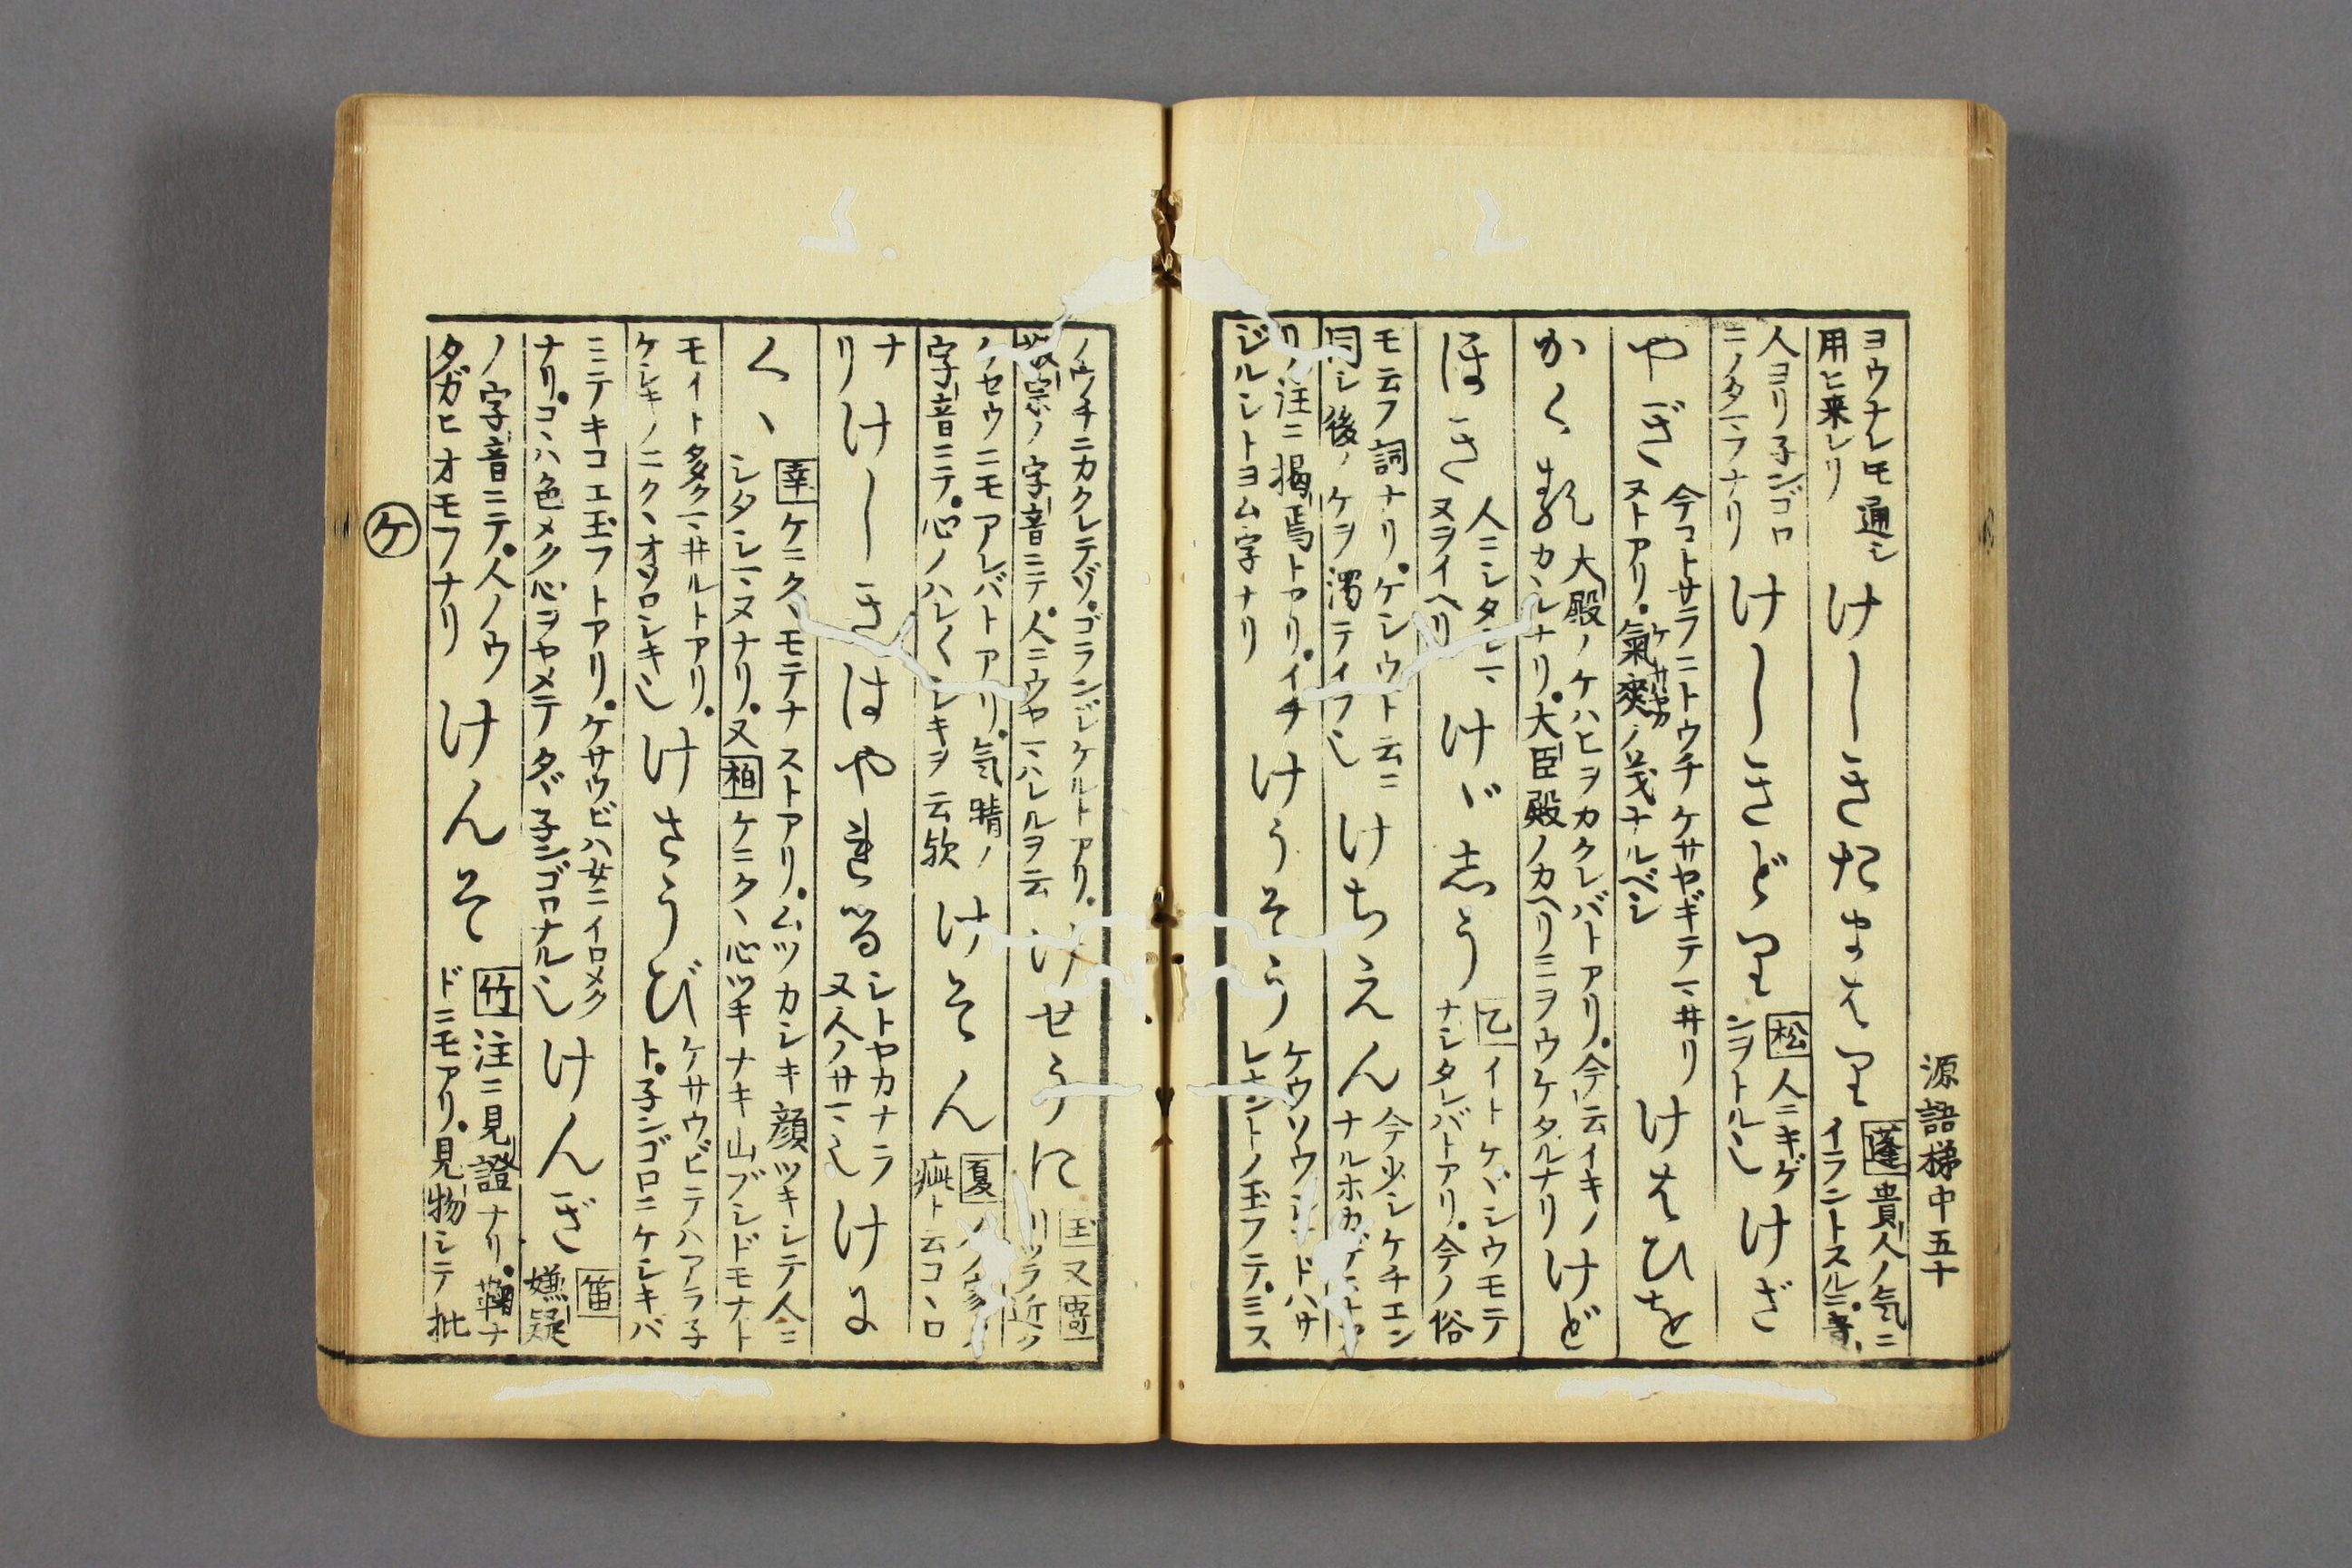 源語梯中五十
ヨウナレ𪜈通シ
用ヒ来レリ
けしきたまはり
蓬貴人ノ気ニ
イラントスル
人ヨリ子ンゴロ
ニノタマフナリ
けしきどり
松人ニキゲ
ンヲトル也
けざ
やぎ
今コトサラニトウチケサヤギテマ井リ
ヌトアリ。氣爽ノ義ナルベシ
けはひを
かくる
大殿ノケハヒヲカクレバトアリ。今云イキノ
カヽルナリ。大臣殿ノカヘリミヲウケタルナリ
けど
ほき
人ニシタシマ
ヌヲイヘリ
けゞしう
乙イトケヾシウモテ
ナシタレバトアリ。今ノ俗
モ云フ詞ナリ。ケシウト云ニ
同シ後ノケヲ濁テイフ也
けちえん
今少シケチエン
ノ注ニ掲焉トアリ。イチ
ジルシトヨム字ナリ
けうそう
ケウソウシ
トノ玉フテ。ミス
ノウチニカクレテゾ。ゴランジケルトアリ。
ノ字音ニテ。人ニウヤマハルヽヲ云
けせうに
玉又寄
ノケセウニモアレバトアリ。気晴ノ
字音ニテ。心ノハレ〱シキヲ云欤
けそん
夏
疵ト云コヽロ
ナ
リ
けしきはやまる
シトヤカナラ
又人ノサマ也
けに
くゝ
幸ケニクヽモテナストアリ。ムツカシキ顔ツキシテ人ニ
シタシマヌナリ。又柏ケニクヽ心ヅキナキ山ブシドモナト
モイト多クマ井ルトアリ。
ケシキノニクヽオソロシキ也
けさうび
ケサウビテハアラ子
ト。子ンゴロニケシキバ
ミテキコエ玉フトアリ。ケサウビハ女ニイロメク
ナリ。コヽハ色メク心ヲヤメテタヾ子ンゴロナル也
けんぎ
笛
嫌疑
ノ字音ニテ。人ノウ
タガヒオモフナリ
けんそ
竹注ニ見證ナリ。鞠ナ
ドニモアリ。見物シテ批
ケ